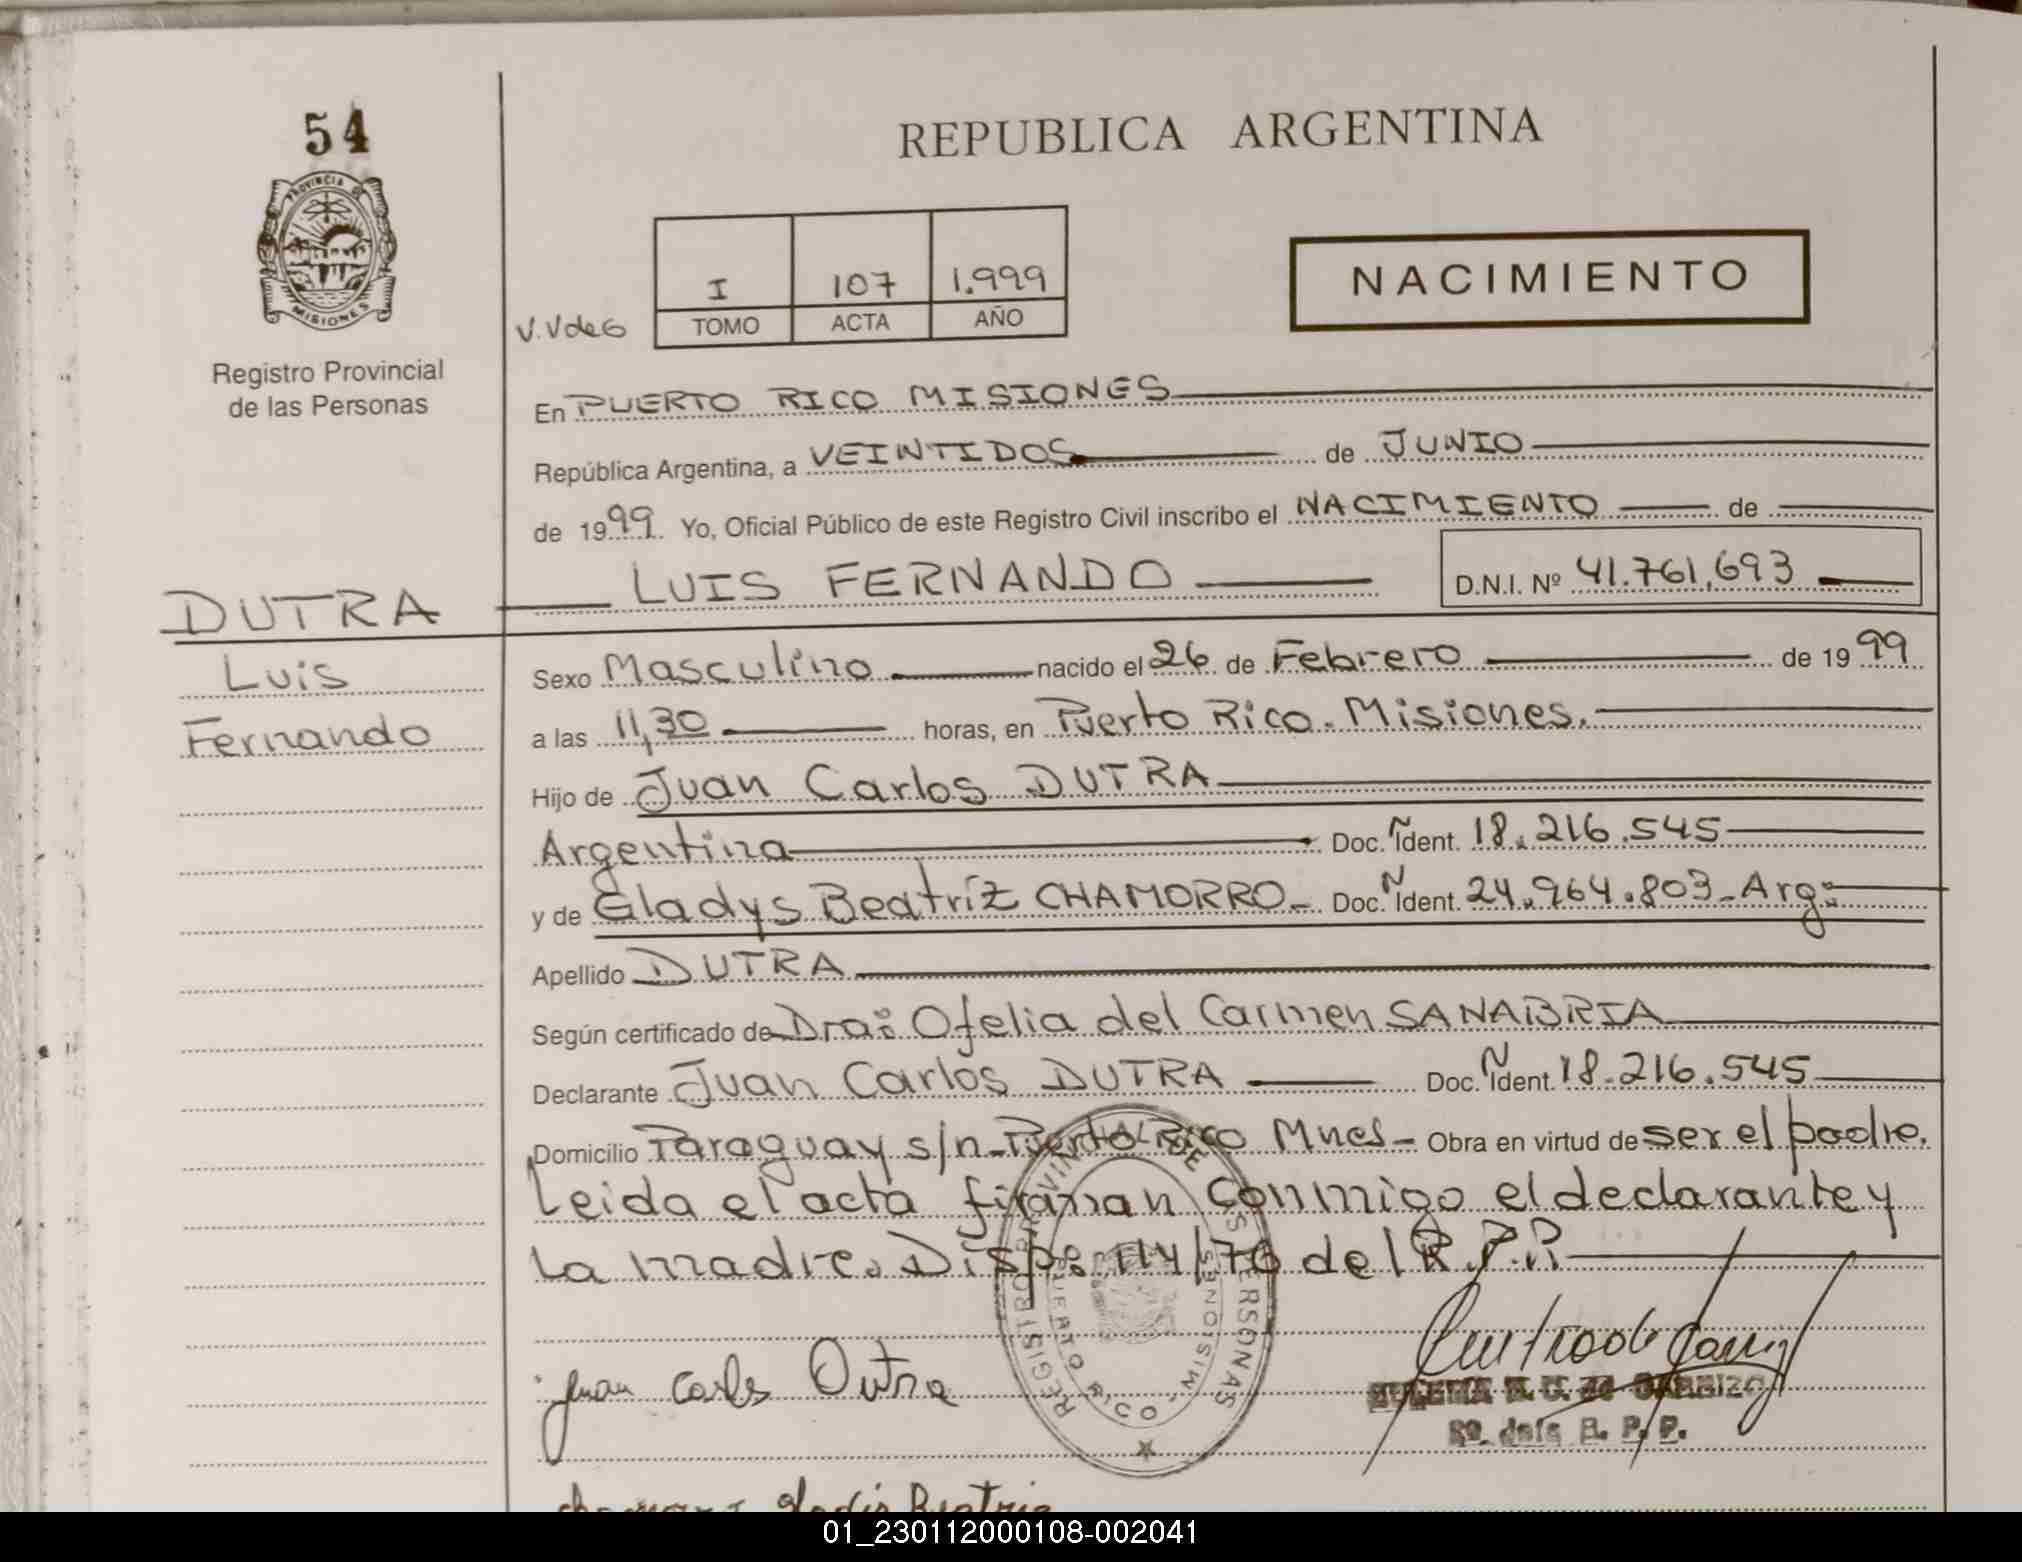 54
PROVINCIA DE
MISIONES
Registro Provincial
de las Personas
REPUBLICA ARGENTINA
I 107 1.999
V.VdeG TOMO ACTA AÑO
NACIMIENTO
En PUERTO RICO MISIONES
República Argentina, a VEINTIDOS de JUNIO
de 1999. Yo, Oficial Público de este Registro Civil inscribo el NACIMIENTO de
LUIS FERNANDO D.N.I. Nº 41.761.693
DUTRA
Luis
Fernando
Sexo Masculino nacido el 26 de Febrero de 1999
a las 11,30 horas, en Puerto Rico. Misiones.
Hijo de Juan Carlos DUTRA
Argentina Doc. Ñ Ident. 18.216.545
y de Gladys Beatríz CHAMORRO- Doc. Ñ Ident. 24.964.803-Arg:
Apellido DUTRA
Según certificado de Dra: Ofelia del Carmen SANABRIA
Declarante Juan Carlos DUTRA Doc. Ñ Ident. 18.216.545
Domicilio Paraguay s/n-Puerto Rico Mnes- Obra en virtud de ser el padre.
Leida el acta firman conmigo el declarante y
La madre. Disp: 114/76 del R.P.P.
REGISTRO PROVINCIAL DE LAS PERSONAS
PUERTO RICO - MISIONES
Juan Carlos Dutra
R. P. P.
Gladis Beatriz
01_230112000108-002041